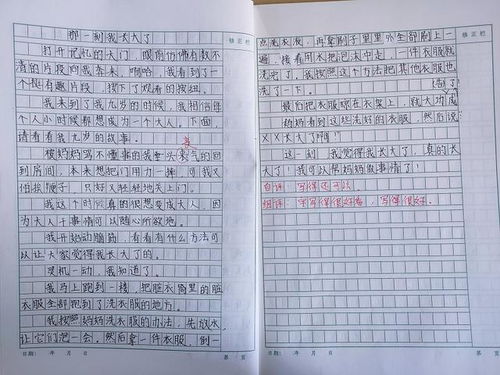 修正栏
那一刻我长大了
打开记忆的大门，眼前仿佛有数不
清的片段向我奔来，嘀哈，我看到了一
个挺有趣片段，按下了观看的按纽。
我来到了我九岁的时候，我相信每
个人小时候都想成为一个大人，下面，
请看看我九岁的故事。
被妈妈骂不懂事的我垂头丧气的回
到房间，本来想把门用力一摔，可我又
怕挨鞭子，只好又轻轻地关上门。
我这个时候真的很想变成大人，因
为大人干事情可以随心所欲地。
我开始动脑筋，看看有什么方法可
以让大家觉得我长大了的。
灵机一动，我知道了。
我马上跑到一楼，把脏衣篓里的脏
衣服全部抱到了洗衣服的地方。
我按照妈妈洗衣服的办法，先放水，
让它们泡一会，然后拿一件衣服，倒一
日期： 年 月 日 第 页
修正栏
点洗衣液，再拿刷子里里外全部刷上一
遍，接着用水把泡沫中走，一件衣服就
洗完了，我按照这个方法把其他衣服也
洗了一下。
最后把衣服晾在衣架上，就大功告成
妈妈看到这些洗好的衣服，然后说
××长大了啊！
这一刻，我觉得我长大了，真的长
大了！我可以帮妈妈做事情了！
自评：写得还可以
组评：字写得很好看，写得很好。
日期： 年 月 日 第 页